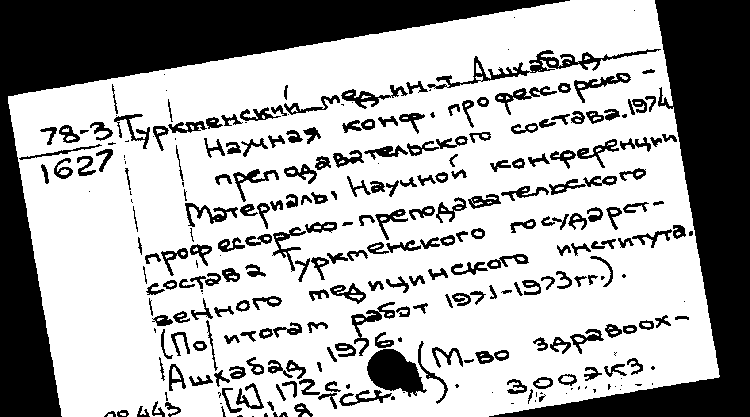 78-3
1627
Туркменский мед. ин-т Ашхабад.
Научная конф. профессорско-
преподавательского состава. 1974
Материалы Научной конференции
профессорско-преподавательского
состава Туркменского государст-
венного медицинского института.
(По итогам работ 1971-1973 гг.).
Ашхабад, 1976.
[4], 172 с. (М-во здравоох-
ТССР).